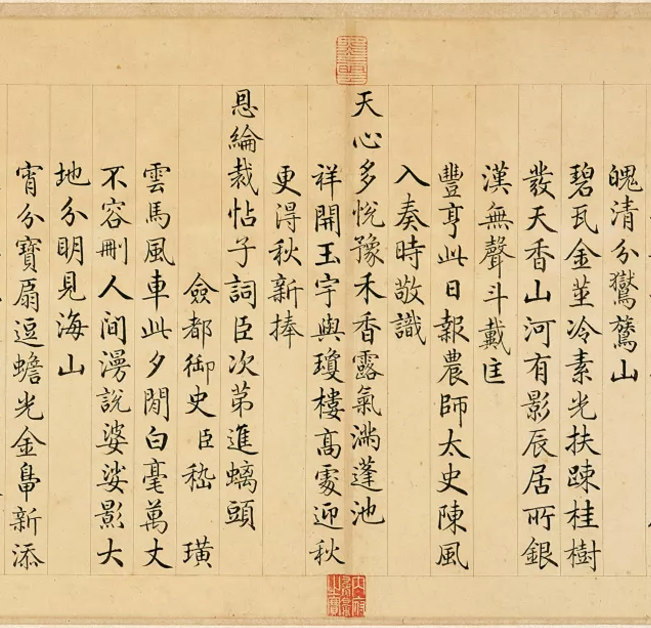 魄清分鸑鷟山
碧瓦金莖冷素光扶踈桂樹
發天香山河有影辰居所銀
漢無聲斗戴匡
豐亨此日報農師太史陳風
入奏時敬識
天心多悅豫禾香露氣滿蓬池
祥開玉宇與瓊樓高處迎秋
更得秋新捧
恩綸裁帖子詞臣次苐進螭頭
僉都御史臣嵇璜
雲馬風車此夕閒白毫萬丈
不容刪人間漫說婆娑影大
地分明見海山
宵分寶扇逗蟾光金新添